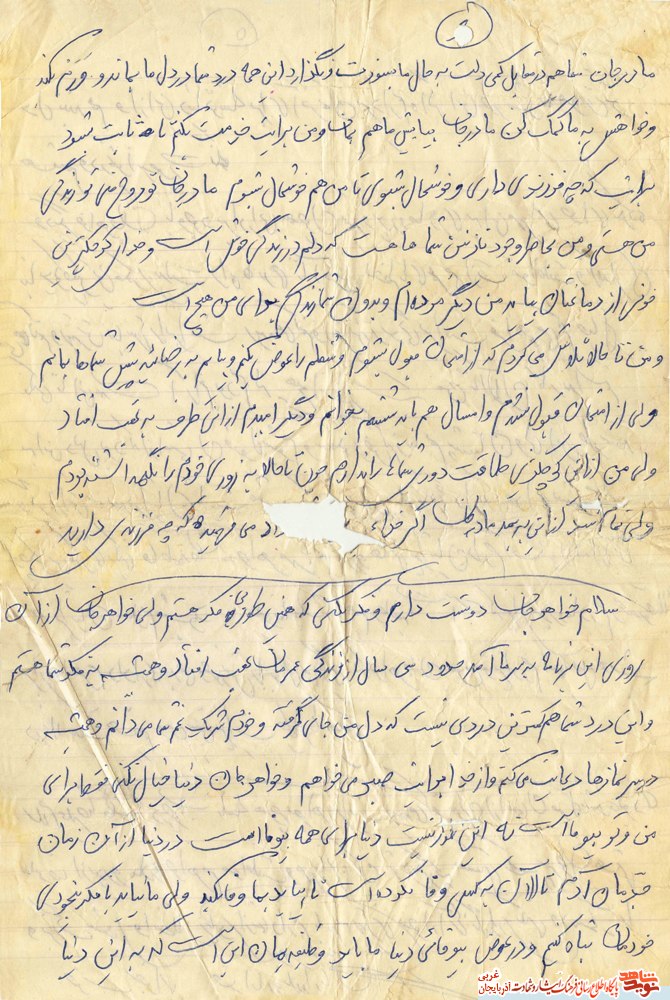 مادر جان شما هم در مقابل کمی دلت به حال ما بسوزد و نگذار این همه درد شما در دل ما بماند و نکند
و خواهش به ما کمک کن مادر جان بیا پیش ما هم بمان و من برایت خدمت بکنم تا ثابت شود
برایت که چه فرزندی داری و خوشحال شوی تا من هم خوشحال شوم مادر جان تو روح من تو زندگی
من هستی و من بخاطر وجود نازنین شما ها هست که دلم در زندگی خوش است و خدای کوچکترین
خونی از دماغتان بیاید من دیگر مرده‌ام و بدون شما زندگی برای من هیچ است
و من تا حالا تلاش می کردم که از امتحان قبول شوم و شغلم را عوض کنم و بیایم به رضائیه پیش شماها بمانم
ولی از امتحان قبول نشدم و امسال هم باید بخوانم و دیگر امیدم از این طرف به عقب افتاد
ولی من از این که دیگر طاقت دوری شماها را ندارم چون تا حالا به زوری خودم را نگهداشته بودم
ولی تمام شد به بعد مادر جان اگر خدا می فهمید که چه فرزندی دارید
سلام خواهر جان دوست دارم و فکر نکنی که همین طوری فکر هستم ولی خواهر جان از آن
روزی این برنامه به سر ما آمد حدود سی سال از زندگی عمرمان عقب افتاد و همیشه به فکر شما هستم
و این درد شما هم کمترین دردی نیست که دل من جای گرفته و خودم شریک غم شما می دانم و همیشه
در سر نمازها دعایت می کنم و از خدا برایت صبر می خواهم و خواهر جان دنیا خیال نکنی فقط برای
من و تو بیوفا است نه این طور نیست دنیا برای همه بیوفا است در دنیا از آن زمان
آدم تا الان به کسی وفا نکرده است تا بیاید بما وفا بکند ولی ما نباید با فکر بیخودی
خودمان تباه کنیم و در عوض بیوفائی دنیا ما باید وظیفه یمان این است که به این دنیا
نوید شاهد
پایگاه اطلاع رسانی فرهنگ ایثار و شهادت آذربایجان غربی